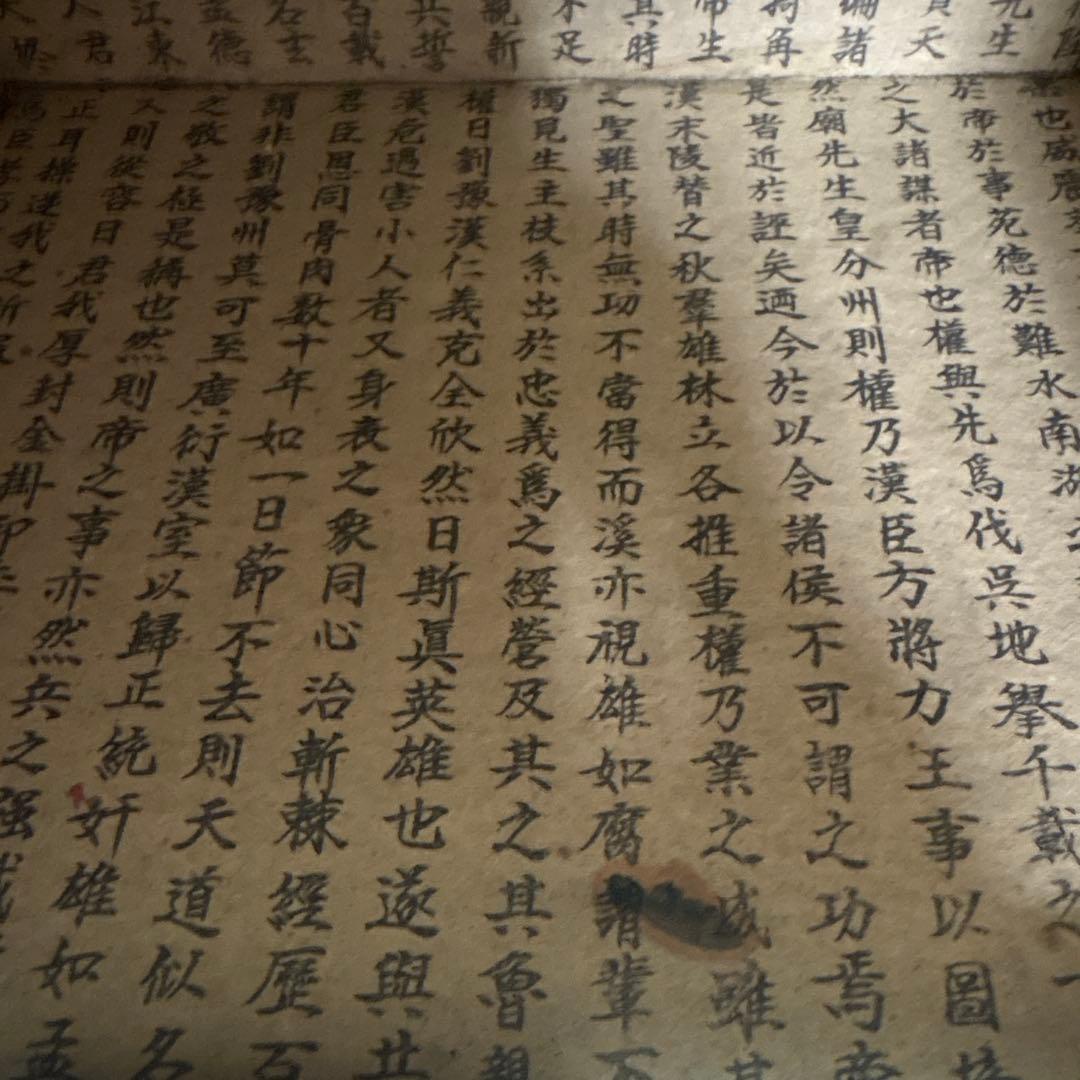 先生
負天
諸
掎角
帝生
其時
不足
親新
共誓
百載
名玄
孟德
江東
人君
也
於帝於事苑德於難水南湖
之大諸謀者帝也權與先爲伐吳地擧千載之
然廟先生皇分州則權乃漢臣方將力王事以圖
是皆近於誣矣迺今於以令諸侯不可謂之功焉帝
漢末陵替之秋羣雄林立各推重權乃業之成雖其
之聖雖其時無功不當得而溪亦視雄如腐諸輩不
獨見生主枝系出於忠義爲之經營及其之其魯親
權曰劉豫漢仁義克全欣然曰斯眞英雄也遂與共
漢危遇害小人者又身衰之衆同心治斬棘經歷百
君臣恩同骨肉数十年如一日節不去則天道似名
謂非劉豫州莫可至廣衍漢室以歸正統奸雄如孟
之敬之極是稱也然則帝之事亦然兵之强
人則從容曰君我厚封金掛印
正耳操逆我之所